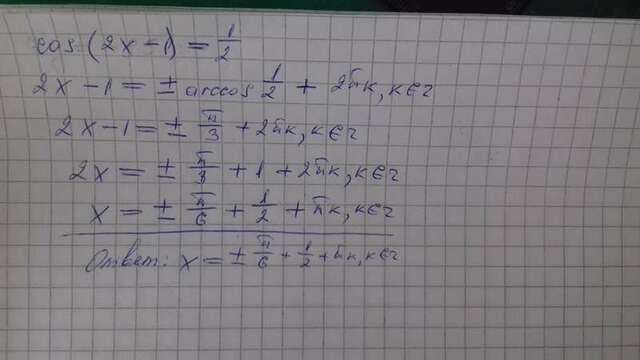 cos (2x-1) = 1/2
2x-1 = ± arccos 1/2 + 2πк, к∈z
2x-1 = ± π/3 + 2πк, к∈z
2x = ± π/3 + 1 + 2πк, к∈z
x = ± π/6 + 1/2 + πк, к∈z
Ответ: x = ± π/6 + 1/2 + πк, к∈z